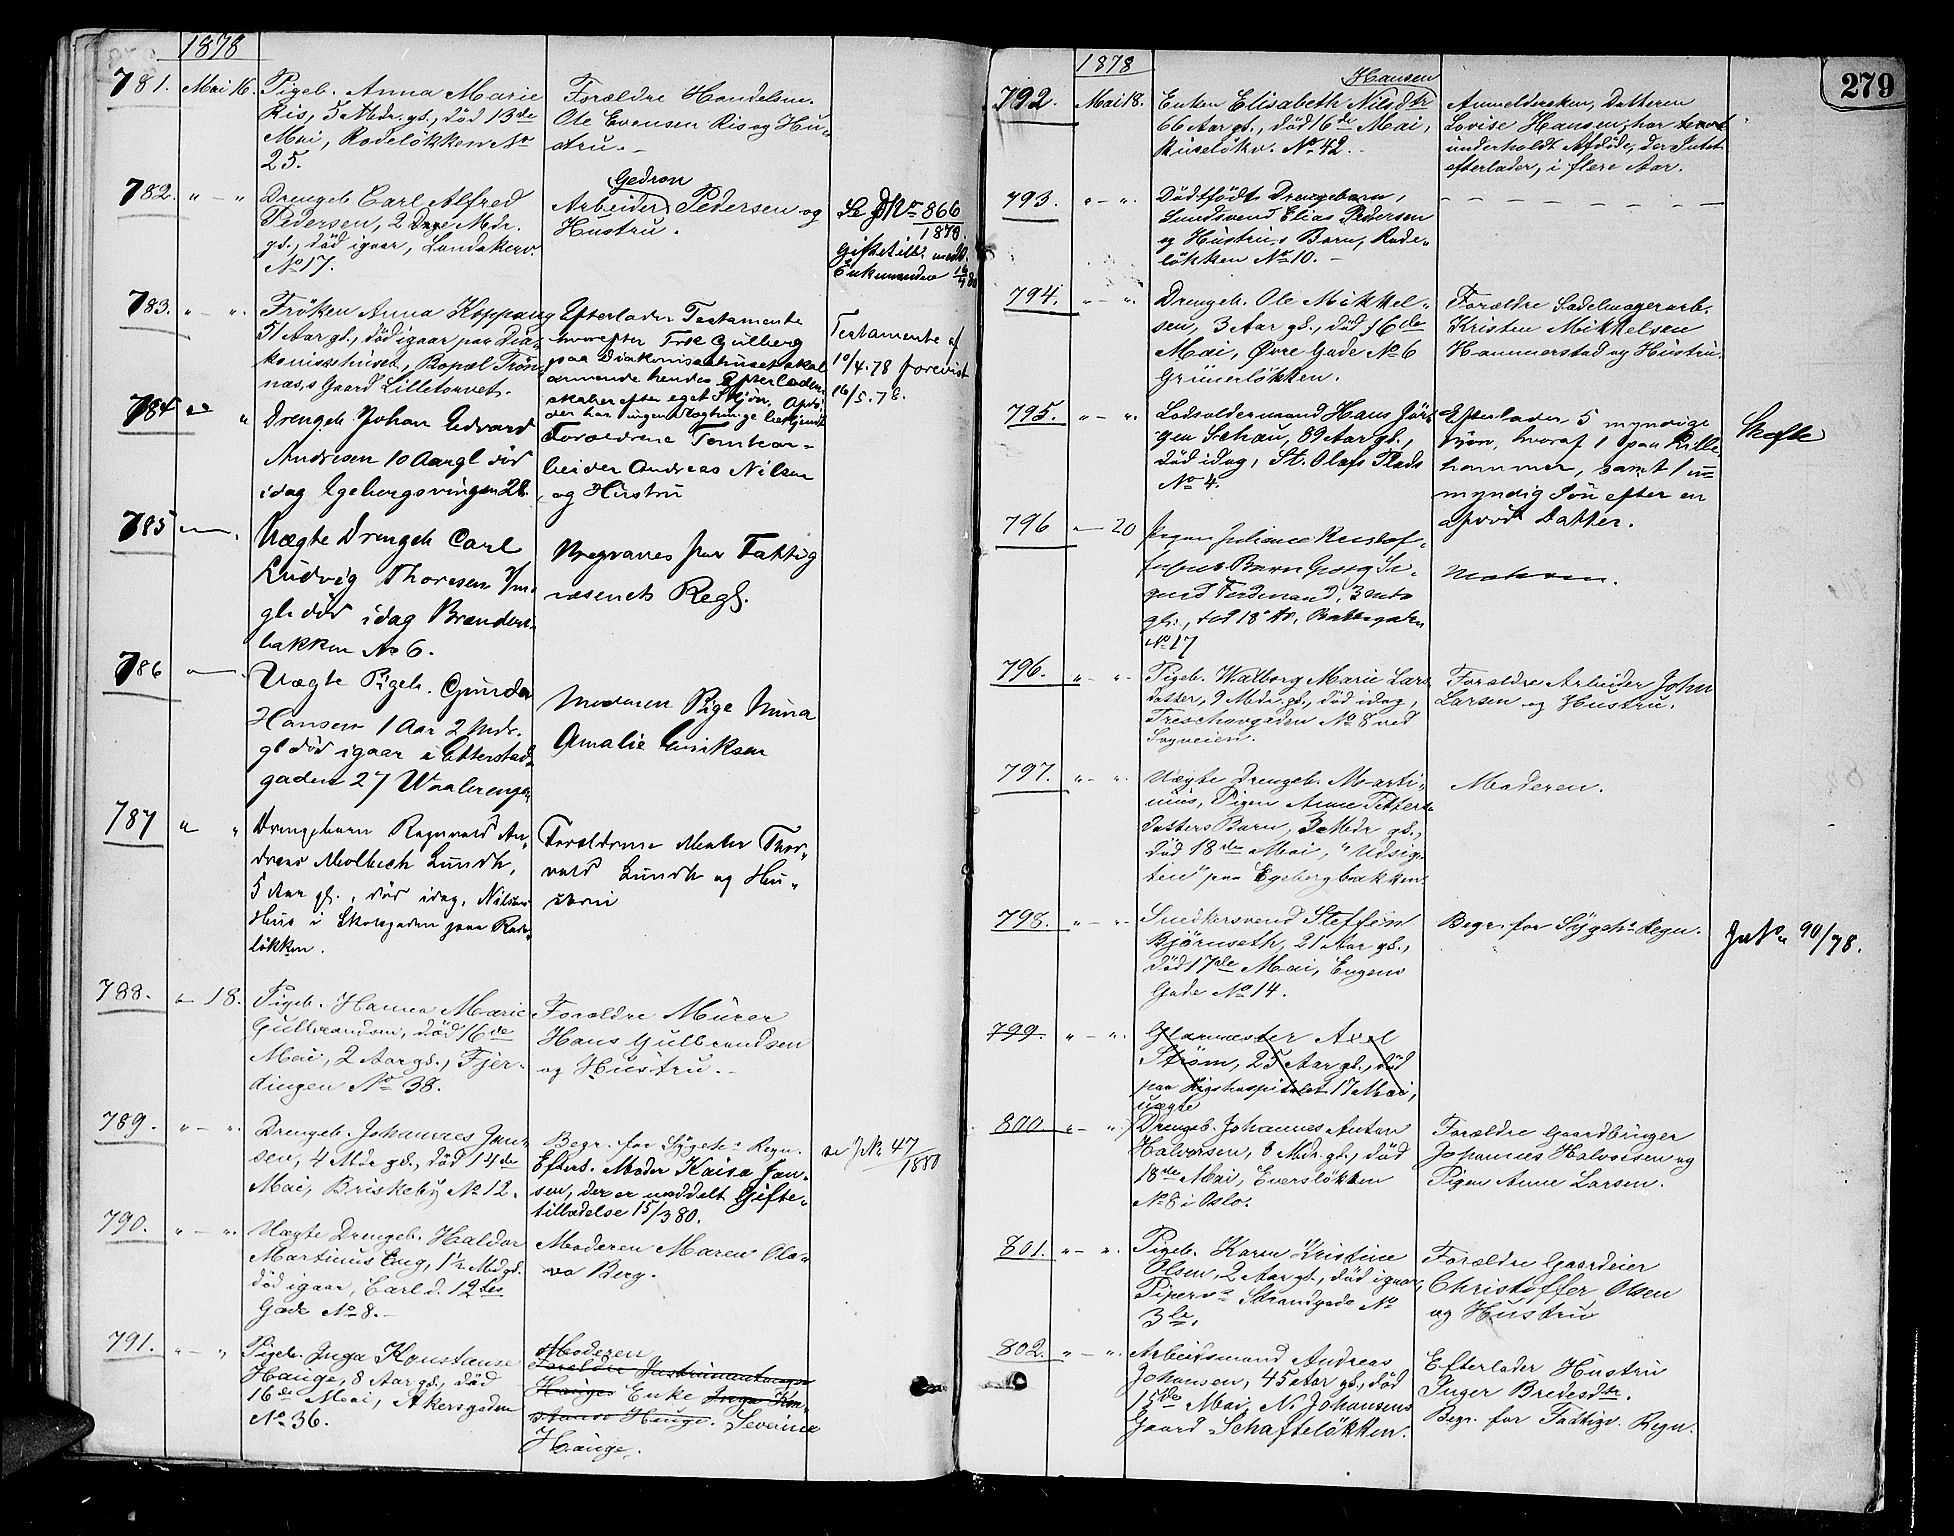 1878
781. Mai 16. Pigeb. Anna Marie
Ris, 5 Mdr. gl., död 13de
Mai, Rodelökken No
25.
Forældre Handelsm.
Ole Evensen Ris og Hu-
stru.
782. " - " Drengeb. Carl Alfred
Pedersen, 2 Mdr.
gl., död igaar, Landakerv.
No 17.
Gedron
Arbeider Pedersen og
Hustru.
Se JNo 866
1878.
Giftetill. medd.
Enkemanden
783. " - " Fröken Anna Koppang
51 Aar gl., död igaar paa Dia-
konissehuset, Bopæl Trön-
næs,s Gaard Lilletorvet.
Efterlader Testamente
hvorefter Frk Gulberg
paa Diakonissehuset skal
anvende hendes Efterladen-
skaber efter eget Skjön. Afdö-
de har ingen Slægtninge bekjendt
Testamente af
10/4.78 forevist
16/5.78.
784 " " Drengeb. Johan Edvard
Andresen 10 Aar gl död
idag Egebergsvingen 28.
Forældrene Tomtear-
beider Andreas Nilsen
og Hustru
785 Uægte Drengeb Carl
Ludvig Thoresen
gl. död idag Brænders-
bakken No 6.
Begraves for Fattig
væsenets Regl.
786 Uægte Pigeb. Gunda
Hansen 1 Aar 2 Mdr.
gl död igaar i Etterstad-
gaden 27 Waalerenge,
Moderen Pige Nina
Amalie Eriksen
787 " " Drengebarn Ragnvald An-
dreas Molbech Lundh,
5 Aar gl., död idag, Nilsens
Hus i Skolegaden paa Rode-
lökken.
Forældrene Maler Thor-
vald Lundh og Hu-
stru
788. " 18. Pigeb. Hanna Marie
Gulbrandsen, död 16de
Mai, 2 Aar gl., Fjer-
dingen No 38.
Forældre Murer
Hans Gulbrandsen
og Hustru.
789. " - " Drengeb. Johannes Jan-
sen, 4 Mdr gl., död 14de
Mai, Briskeby No 12.
Begr. for Sygeh.s Regn.
Efterl. Moder Kaisa Jan-
sen, der er meddelt Gifte-
tilladelse 15/3 80.
se JNo 47
1880
790. " - " Uægte Drengeb. Haldor
Martinus Eng, 1½ Md gl.
död igaar, Carl d. 12tes
Gade No 8.
Moderen Maren Ola-
va Berg.
791. " - " Pigeb. Inga Konstanse
Hauge, 8 Aar gl., död
16de Mai, Akersgaden
No 36.
Moderen
Forældre Instrumentmager
Hauges Enke Inga Kon-
stanse Hauge. Severine
Hauge.
279
1878
792. Mai 18. Enken Elisabeth Nilsdtr
Hansen
66 Aar gl., död 16de Mai,
Ruselökv. No 42.
Anmeldersken, Datteren
Lovise Hansen, har
underholdt Afdöde, der Intet
efterlader, i flere Aar.
793. " - " Dödfödt Drengebarn,
Svend Elias Pedersen
og Hustrus Barn, Rode-
lökken No 10.
794. " - " Drengeb. Ole Mikkel-
sen, 3 Aar gl., död 16de
Mai, Øvre Gade No 6
Grünerlökken.
Forældre Sadelmagerarb.
Kristen Mikkelsen
Hammerstad og Hustru.
795. " - " Lodsoldermand Hans Jör-
gen Schau, 89 Aar gl.,
död idag, St. Olafs Plads
No 4.
Efterlader 5 myndige
Börn, hvoraf 1 paa Lille-
hammer, samt 1 u=
myndig Sön efter en
afdöd Datter.
Skifte
796 20 Pigen Juliane
Barn Georg Si-
gurd Ferdinand, 3
gl., död 18
No 17
Moderen.
796. " - " Pigeb. Walborg Marie Lars-
datter, 9 Mdr. gl., död idag,
Treschowgaden No 8 ved
Sagveien.
Forældre Arbeider John
Larsen og Hustru.
797. " - " Uægte Drengeb. Marti-
nius, Pigen Anne Petters-
datters Barn, 3 Mdr gl.,
död 18de Mai, "Udsig-
ten" paa Egebergbakken.
Moderen.
798. " - " Snedkersvend Steffen
Bjørnseth, 21 Aar gl.,
död 17de Mai, Eugens
Gade No 14.
Begr. for Sygeh.s Regn.
JNo 90/78.
799. " - " Glarmester Axel
Ström, 25 Aar gl., död
paa Rigshospitalet 17 Mai,
800. " - " uægte
Drengeb. Johannes Anton
Halvorsen, 8 Mdr. gl., död
18de Mai, Eversløkken
No 8 i Oslo.
Forældre Gaardbruger
Johannes Halvorsen og
Pigen Anne Larsen.
801. " - " Pigeb. Karen Kristine
Olsen, 2 Aar gl., död igaar,
Piperv.s Strandgade No
3 b.
Forældre Gaardeier
Christoffer Olsen
og Hustru
802. " - " Arbeidsmand Andreas
Johansen, 45 Aar gl., död
15de Mai, N. Johansens
Gaard Schafteløkken.
Efterlader Hustru
Inger Bredesdtr.
Begr. for Fattigv. Regn.